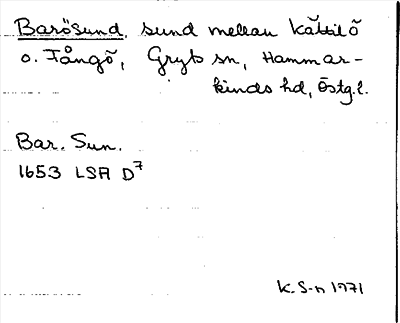 Barösund, sund mellan Kättilö
o. Fångö, Gryts sn, Hammar-
kinds hd, Östg.l.
Bar. Sun.
1653 LSA D7
K. S-n 1971